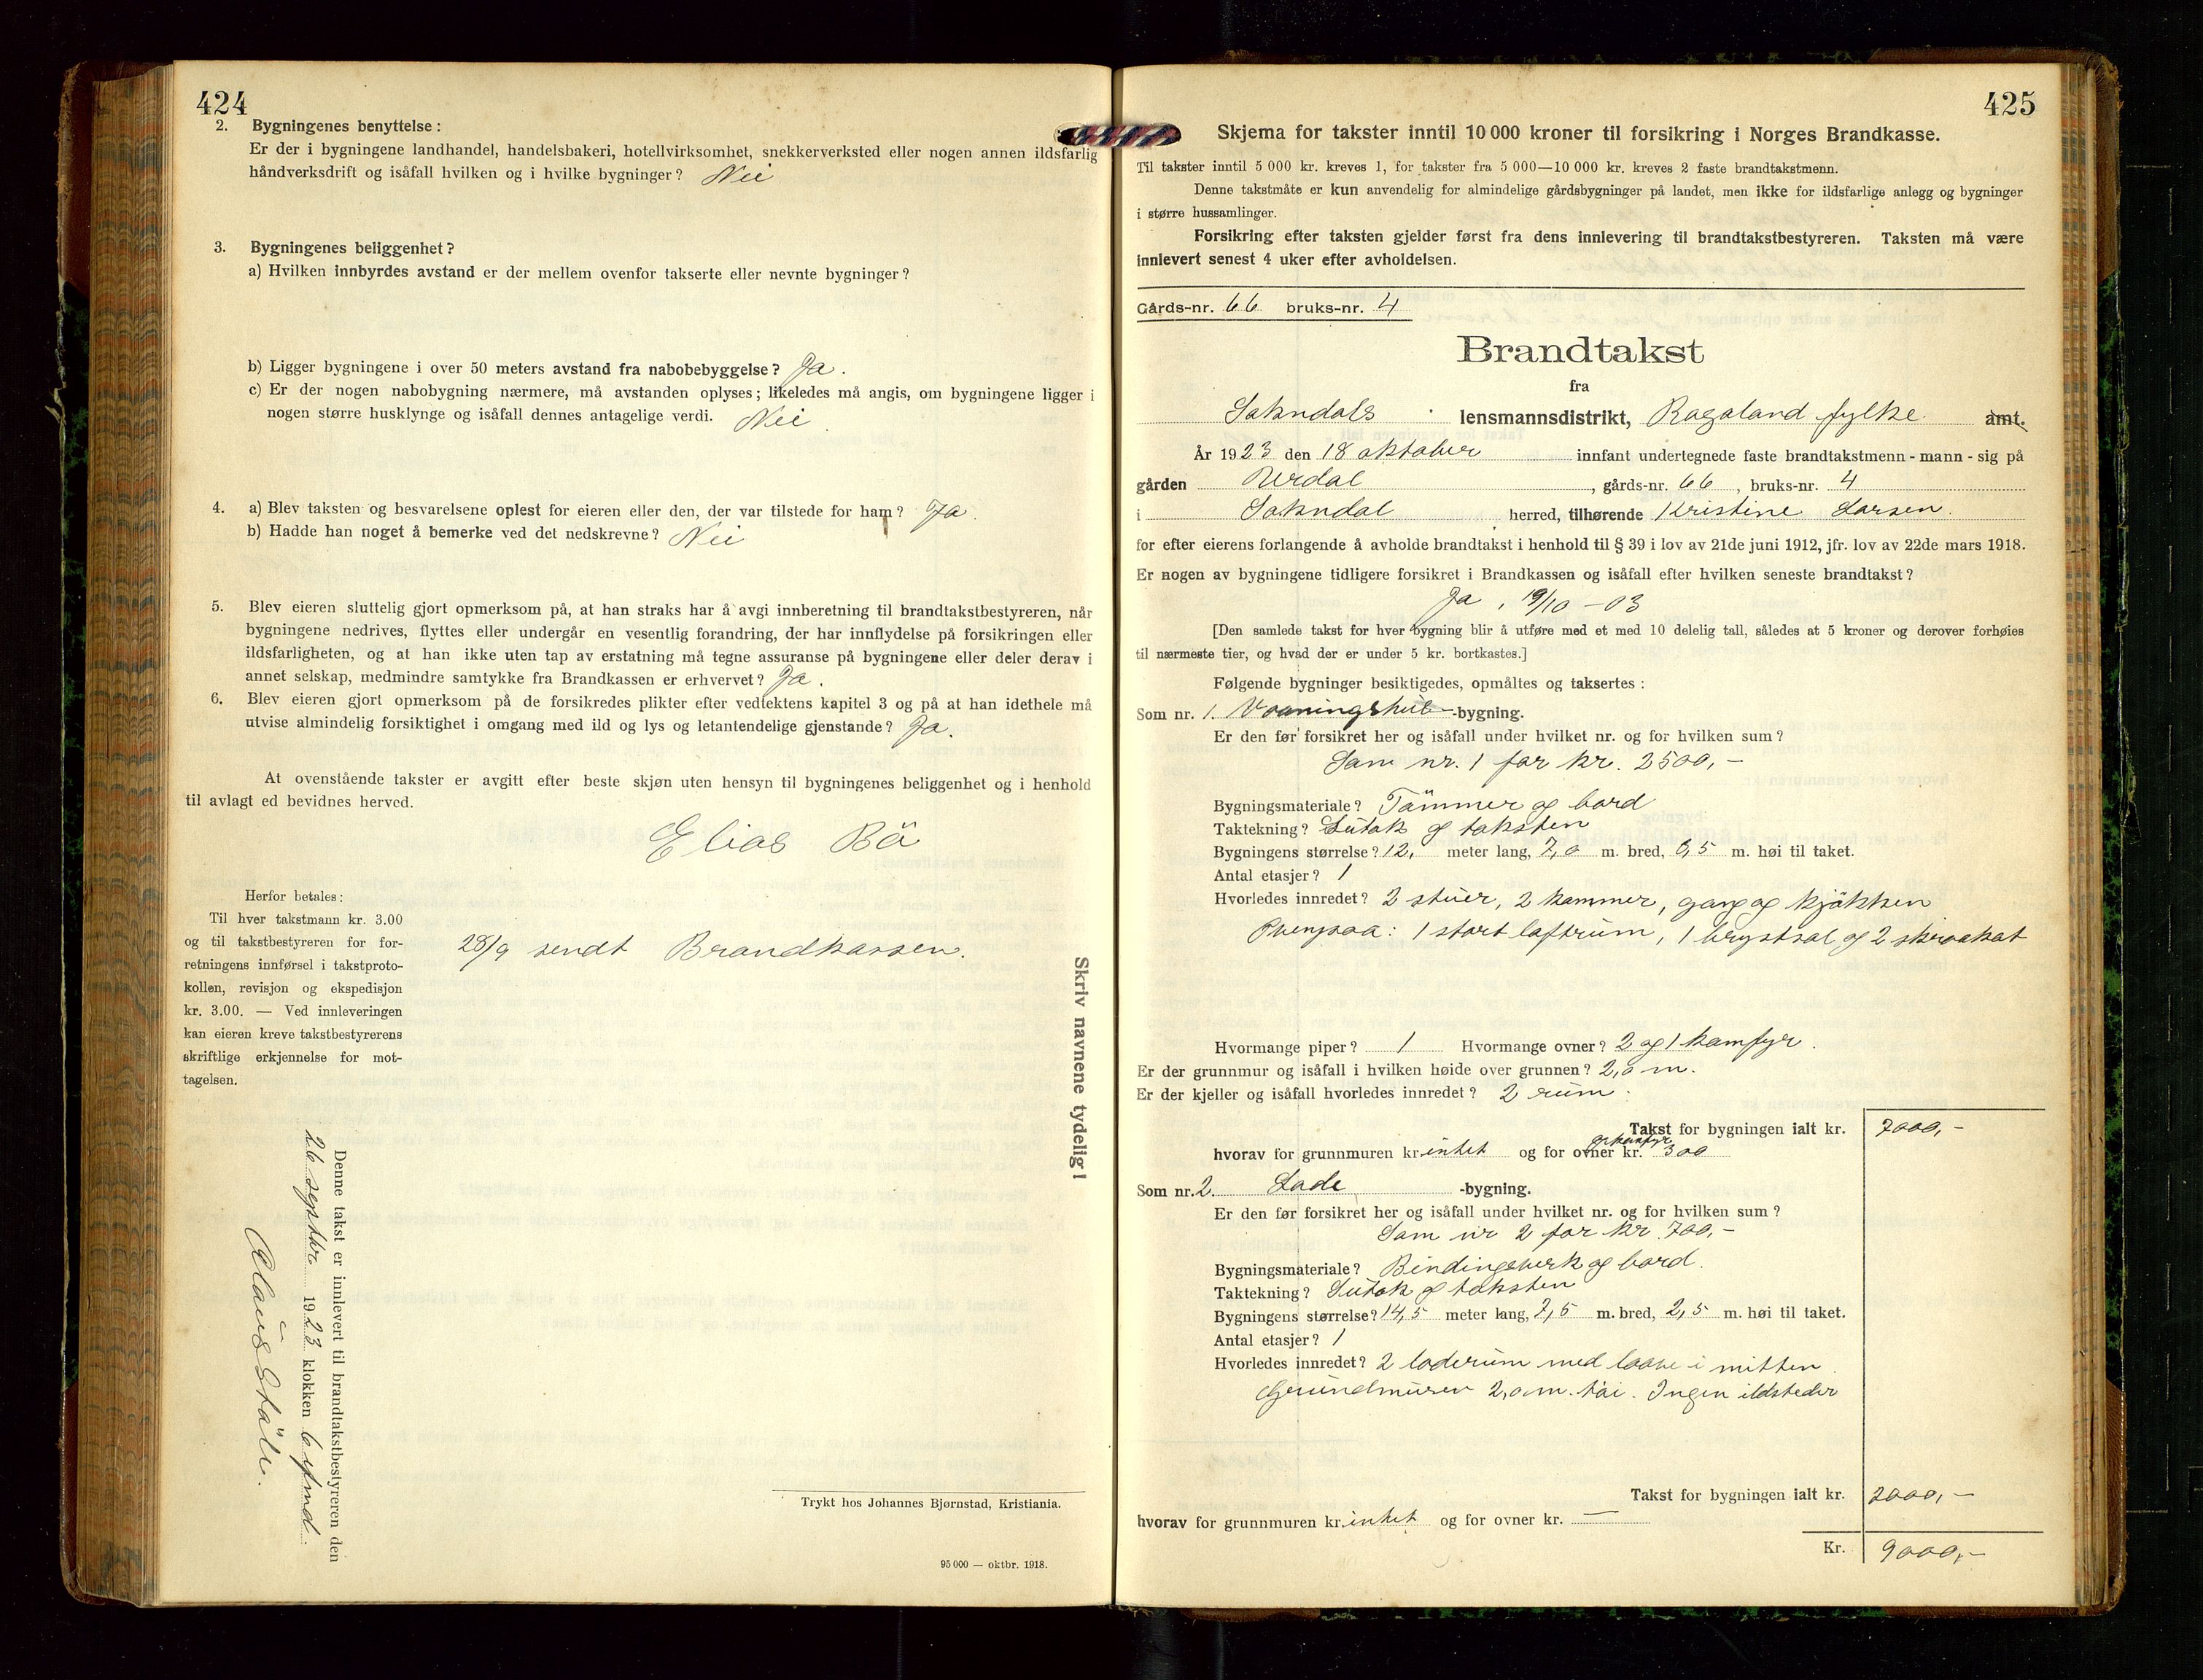 424
2. Bygningenes benyttelse:
Er der i bygningene landhandel, handelsbakeri, hotellvirksomhet, snekkerverksted eller nogen annen ildsfarlig
håndverksdrift og isåfall hvilken og i hvilke bygninger? Nei
3. Bygningenes beliggenhet?
a) Hvilken innbyrdes avstand er der mellem ovenfor takserte eller nevnte bygninger?
b) Ligger bygningene i over 50 meters avstand fra nabobebyggelse? Ja.
c) Er der nogen nabobygning nærmere, må avstanden oplyses; likeledes må angis, om bygningene ligger i
nogen større husklynge og isåfall dennes antagelige verdi. Nei.
4. a) Blev taksten og besvarelsene oplest for eieren eller den, der var tilstede for ham? Ja.
b) Hadde han noget å bemerke ved det nedskrevne? Nei
5. Blev eieren sluttelig gjort opmerksom på, at han straks har å avgi innberetning til brandtakstbestyreren, når
bygningene nedrives, flyttes eller undergår en vesentlig forandring, der har innflydelse på forsikringen eller
ildsfarligheten, og at han ikke uten tap av erstatning må tegne assuranse på bygningene eller deler derav i
annet selskap, medmindre samtykke fra Brandkassen er erhvervet? Ja.
6. Blev eieren gjort opmerksom på de forsikredes plikter efter vedtektens kapitel 3 og på at han idethele må
utvise almindelig forsiktighet i omgang med ild og lys og letantendelige gjenstande? Ja.
At ovenstående takster er avgitt efter beste skjøn uten hensyn til bygningenes beliggenhet og i henhold
til avlagt ed bevidnes herved.
Elias Bö
Herfor betales:
Til hver takstmann kr. 3.00
og til takstbestyreren for for-
retningens innførsel i takstproto-
kollen, revisjon og ekspedisjon
kr. 3.00. — Ved innleveringen
kan eieren kreve takstbestyrerens
skriftlige erkjennelse for mot-
tagelsen.
28/9 sendt Brandkassen.
Skriv navnene tydelig!
Denne takst er innlevert til brandtakstbestyreren den
26 septbr 1923 klokken 6 efmd.
Trykt hos Johannes Bjørnstad, Kristiania.
95 000 — oktbr. 1918.
425
Skjema for takster inntil 10 000 kroner til forsikring i Norges Brandkasse.
Til takster inntil 5 000 kr. kreves 1, for takster fra 5 000—10 000 kr. kreves 2 faste brandtakstmenn.
Denne takstmåte er kun anvendelig for almindelige gårdsbygninger på landet, men ikke for ildsfarlige anlegg og bygninger
i større hussamlinger.
Forsikring efter taksten gjelder først fra dens innlevering til brandtakstbestyreren. Taksten må være
innlevert senest 4 uker efter avholdelsen.
Gårds-nr. 66 bruks-nr. 4
Brandtakst
fra
Sokndals lensmannsdistrikt, Rogaland fylke amt.
År 1923 den 18 oktober innfant undertegnede faste brandtakstmenn - mann - sig på
gården Urdal, gårds-nr. 66, bruks-nr. 4
i Sokndal herred, tilhørende Kristine Larsen.
for efter eierens forlangende å avholde brandtakst i henhold til § 39 i lov av 21de juni 1912, jfr. lov av 22de mars 1918.
Er nogen av bygningene tidligere forsikret i Brandkassen og isåfall efter hvilken seneste brandtakst?
Ja, 19/10 - 03
[Den samlede takst for hver bygning blir å utføre med et med 10 delelig tall, således at 5 kroner og derover forhøies
til nærmeste tier, og hvad der er under 5 kr. bortkastes.]
Følgende bygninger besiktigedes, opmåltes og taksertes:
Som nr. 1. Vaaningshus-bygning.
Er den før forsikret her og isåfall under hvilket nr. og for hvilken sum?
Som nr. 1 for kr. 2500,-
Bygningsmateriale? Tömmer og bord
Taktekning? Sutak og taksten
Bygningens størrelse? 12, meter lang, 7,0 m. bred, 6,5 m. høi til taket.
Antal etasjer? 1
Hvorledes innredet? 2 stuer, 2 kammer, gang og kjökken
Ovenpaa: 1 stort loftrum, 1 brystsal og 2 skraakot
Hvormange piper? 1 Hvormange ovner? 2 og 1 komfyr.
Er der grunnmur og isåfall i hvilken høide over grunnen? 2,0 m.
Er der kjeller og isåfall hvorledes innredet? 2 rum.
Takst for bygningen ialt kr. 7000,-
og komfyr
hvorav for grunnmuren kr. intet og for ovner kr. 300
Som nr. 2. Lade -bygning.
Er den før forsikret her og isåfall under hvilket nr. og for hvilken sum?
Som nr 2 for kr. 700,-
Bygningsmateriale? Bindingsverk og bord.
Taktekning? Sutak og taksten
Bygningens størrelse? 14,5 meter lang, 7,5 m. bred, 2,5 m. høi til taket.
Antal etasjer? 1
Hvorledes innredet? 2 laderum med laave i mitten.
Grundmuren 2,0 m. höi. Ingen ildsteder
Takst for bygningen ialt kr. 2000,-
hvorav for grunnmuren kr. intet og for ovner kr. —
Kr. 9000,-